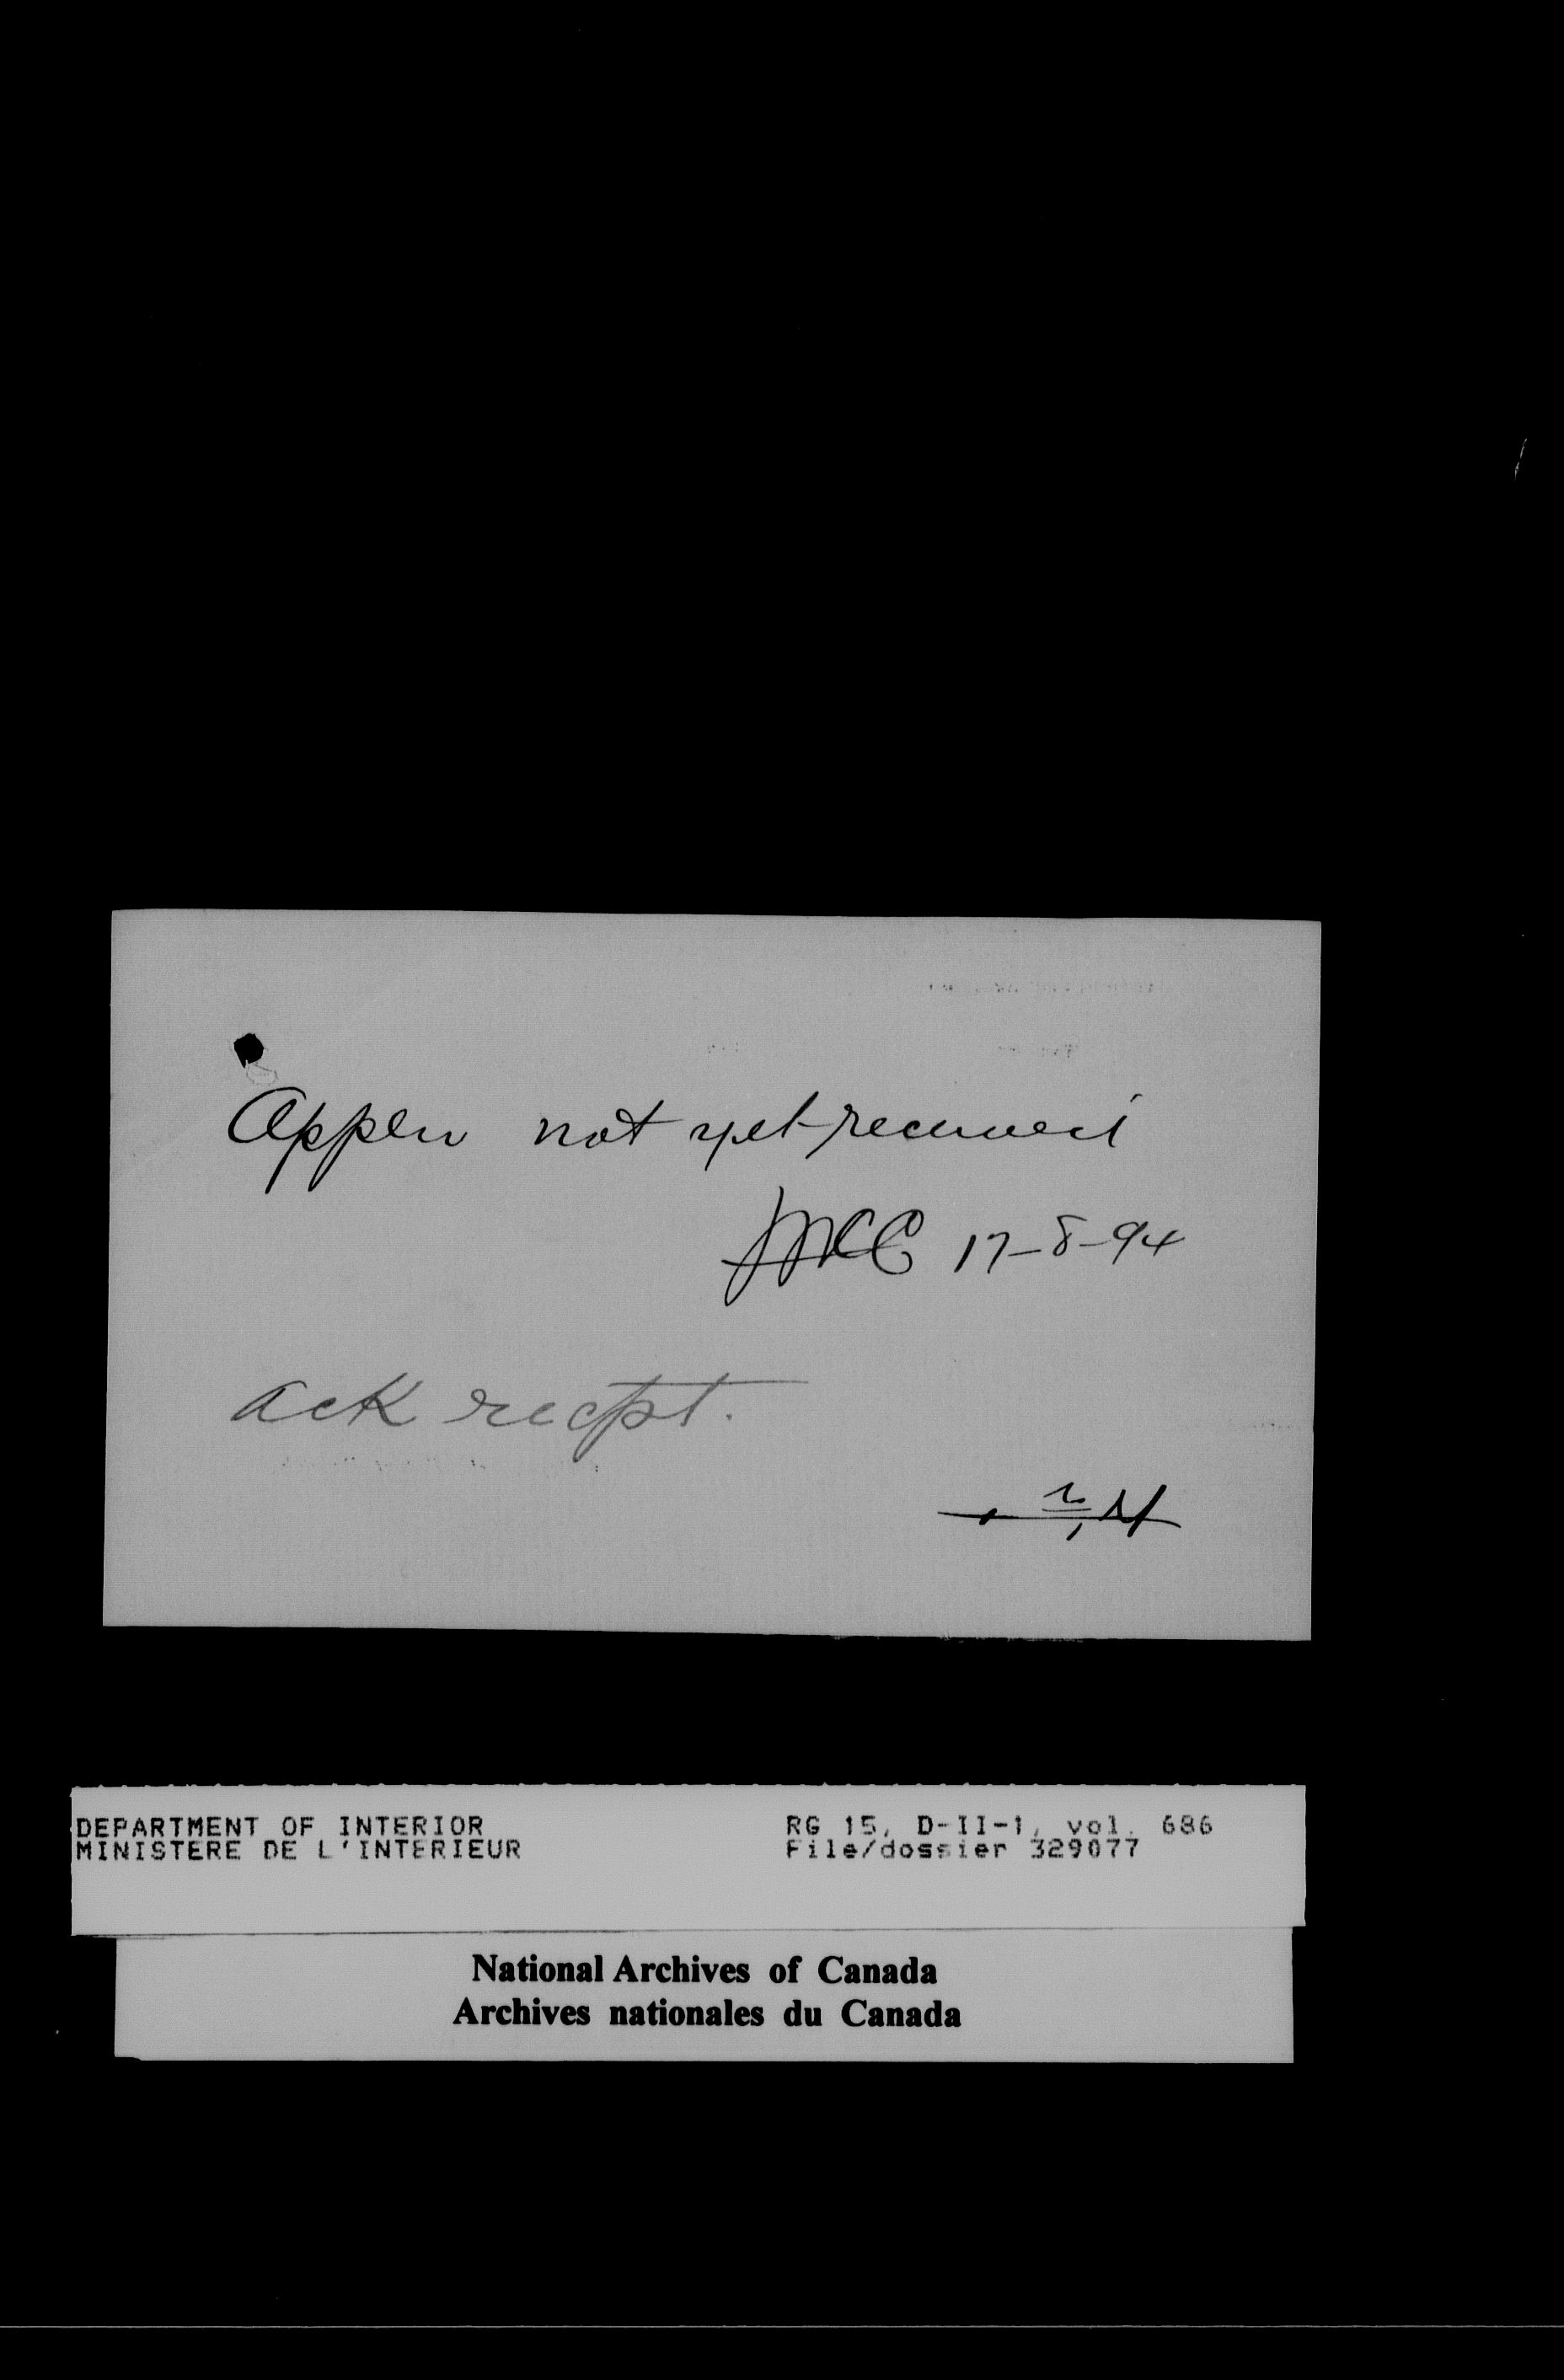 Appln not yet received
17-8-94
ack recpt.
DEPARTMENT OF INTERIOR RG 15, D-II-1, vol. 686
MINISTERE DE L'INTERIEUR File/dossier 329077
National Archives of Canada
Archives nationales du Canada